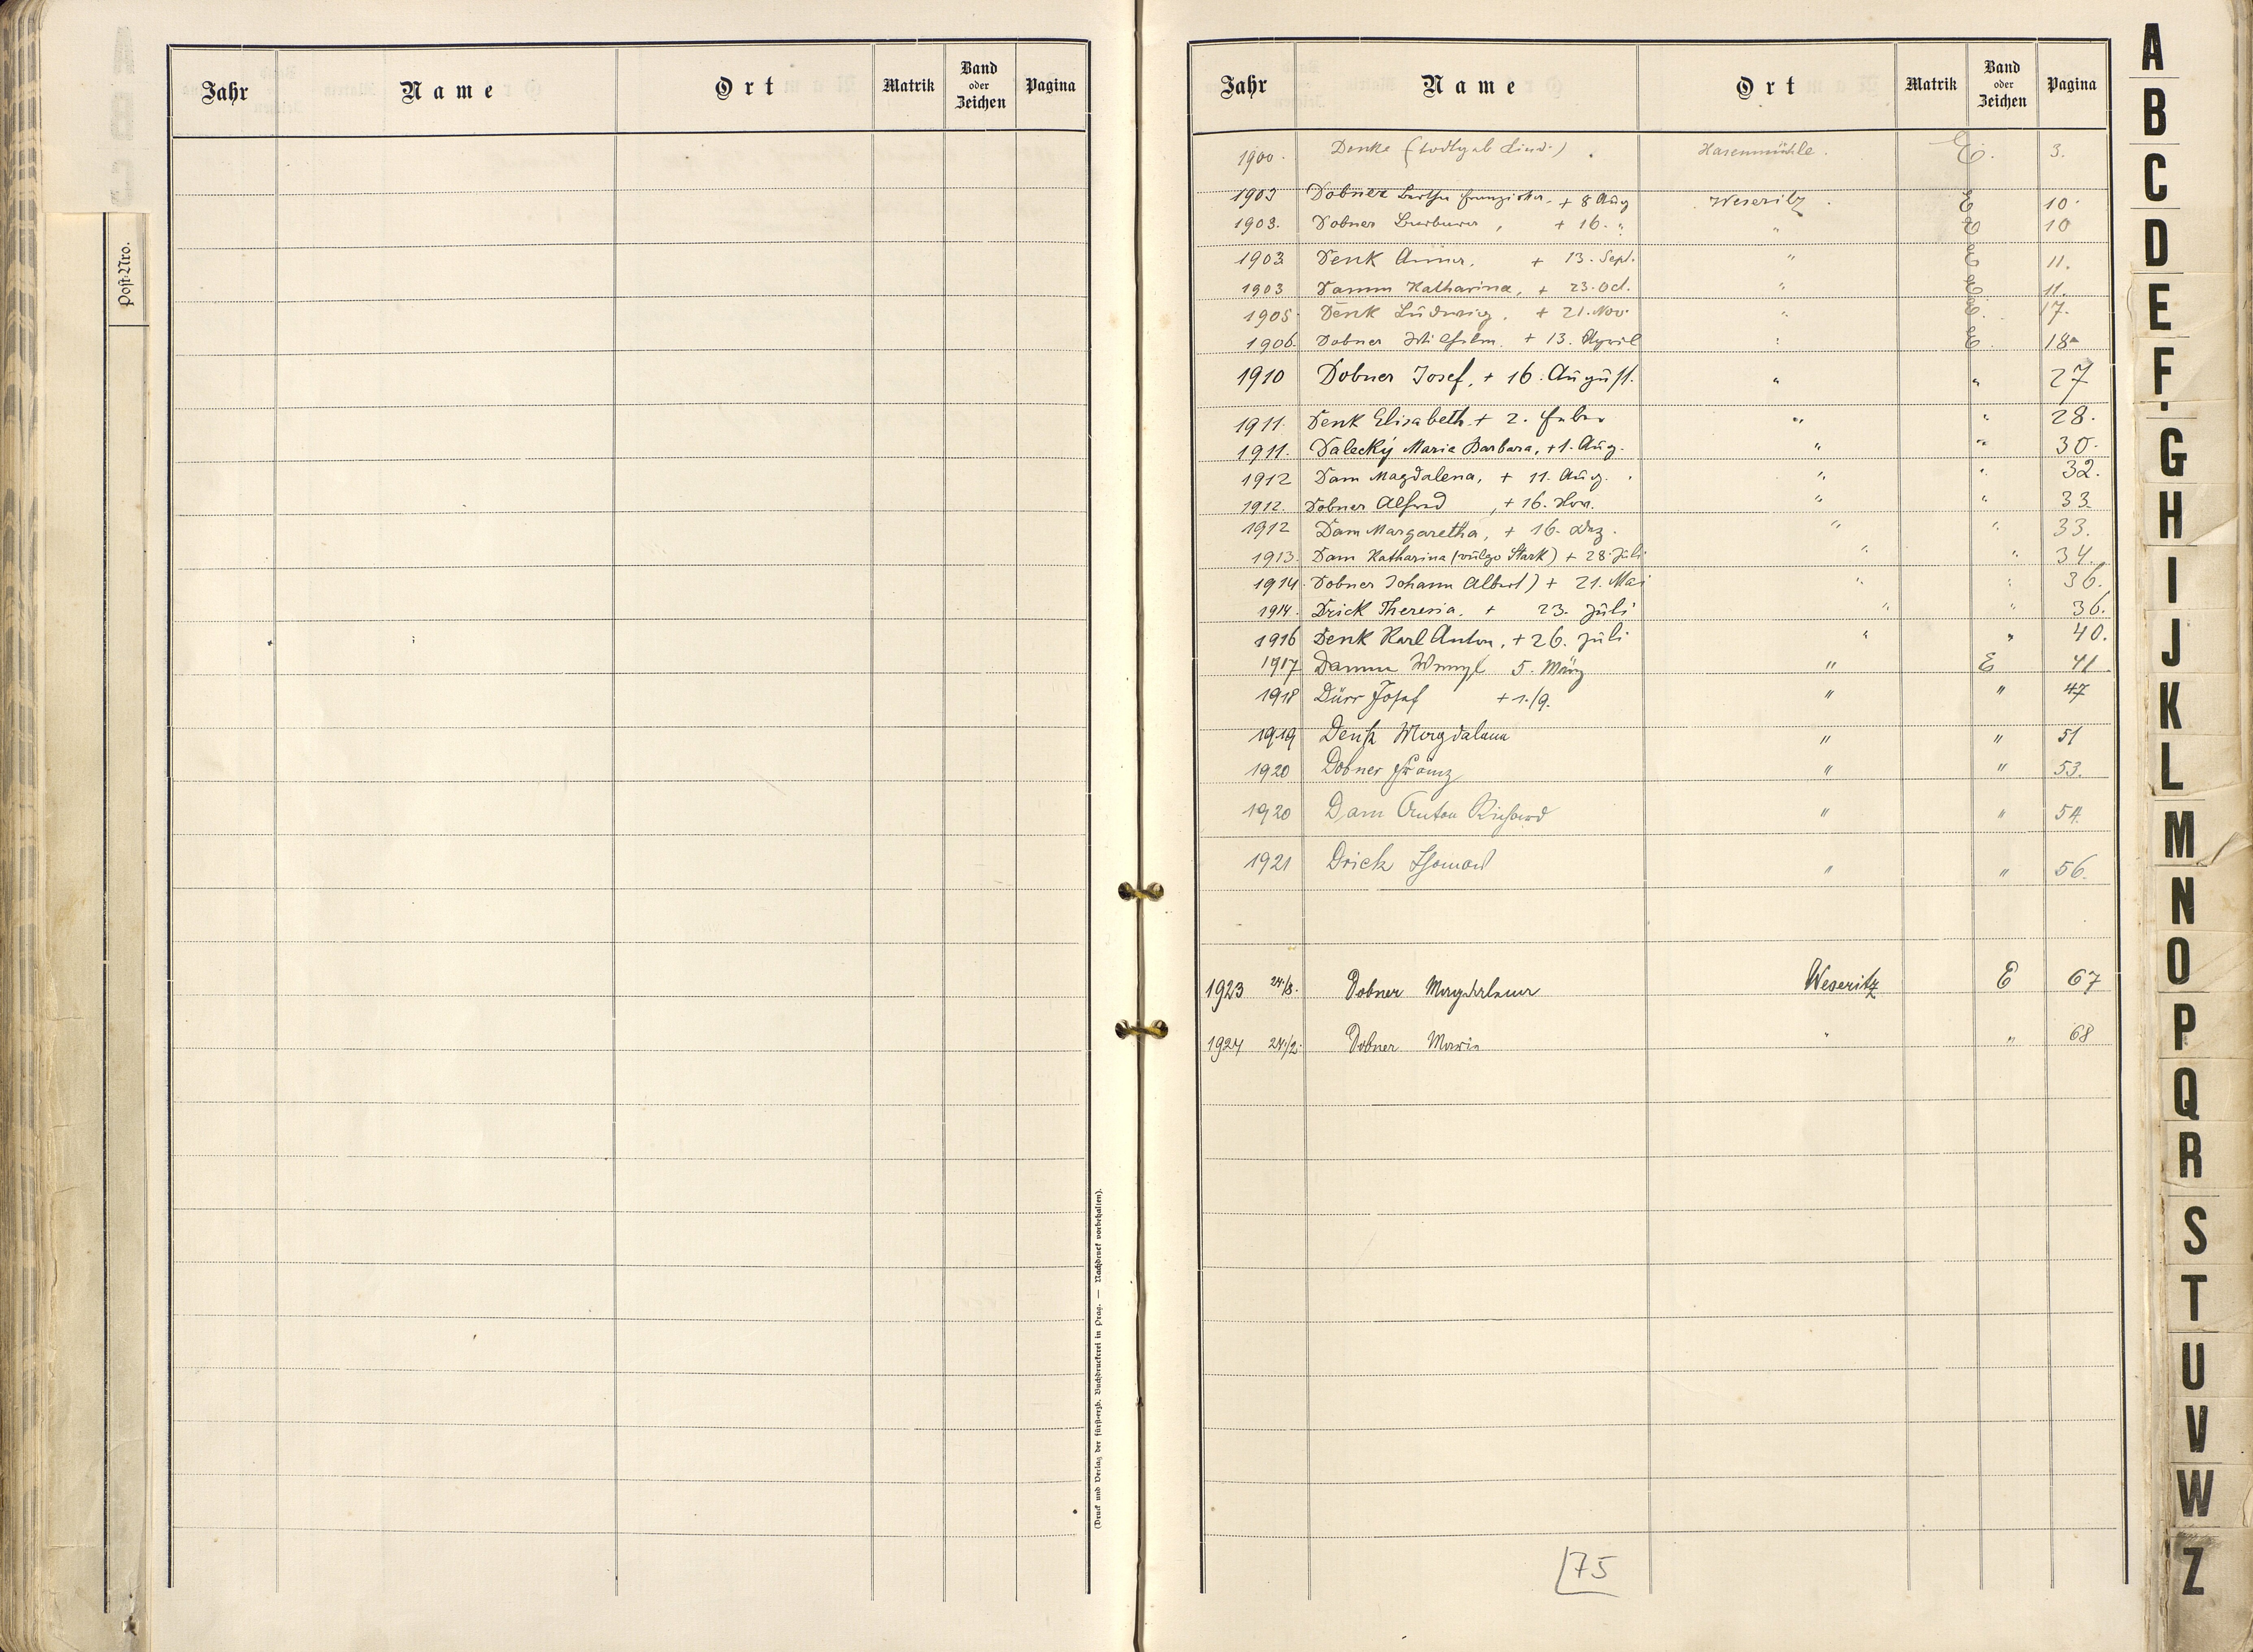 Jahr Name Ort Matrik Band oder Zeichen Pagina
Post-Nro.
(Druck und Verlag der fürst-erzb. Buchdruckerei in Prag. — Nachdruck vorbehalten).
Jahr Name Ort Matrik Band oder Zeichen Pagina
1900. Denke (todtgeb. Kind.) Hasenmühle. E. 3.
1903 Dobner Bertha Franziska. + 8 Aug Weseritz. E 10.
1903. Dobner Barbara, + 16. " " E 10
1903 Denk Anna. + 13. Sept. " E 11.
1903 Damm Katharina, + 23. Oct. " E 11.
1905 Denk Ludwig. + 21. Nov. " E. 17.
1906. Dobner Wilhelm. + 13. April " E. 18
1910 Dobner Josef, + 16. August. " " 27
1911. Denk Elisabeth + 2. Febr " " 28.
1911. Dalecký Maria Barbara, + 1. Aug. " " 30.
1912 Dam Magdalena, + 11. Aug. " " 32.
1912. Dobner Alfred, + 16. Nov. " " 33.
1912 Dam Margaretha, + 16. Dez. " " 33.
1913. Dam Katharina (vulgo Stark) + 28. Juli " " 34.
1914. Dobner Johann Albert) + 21. Mai " " 36.
1914. Drick Theresia. + 23. Juli " " 36.
1916 Denk Karl Anton, + 26. Juli " " 40.
1917 Damm Wenzl 5. März " E 41
1918 Dürr Josef + 1./9. " " 47
1919 Denk Magdalena " " 51
1920 Dobner Franz " " 53.
1920 Dam Anton Richard " " 54.
1921 Drick Thomas " " 56.
1923 24./8. Dobner Magdalena Weseritz E 67
1924 24./2. Dobner Maria " " 68
75
A
B
C
D
E
F
G
H
I
J
K
L
M
N
O
P
Q
R
S
T
U
V
W
Z